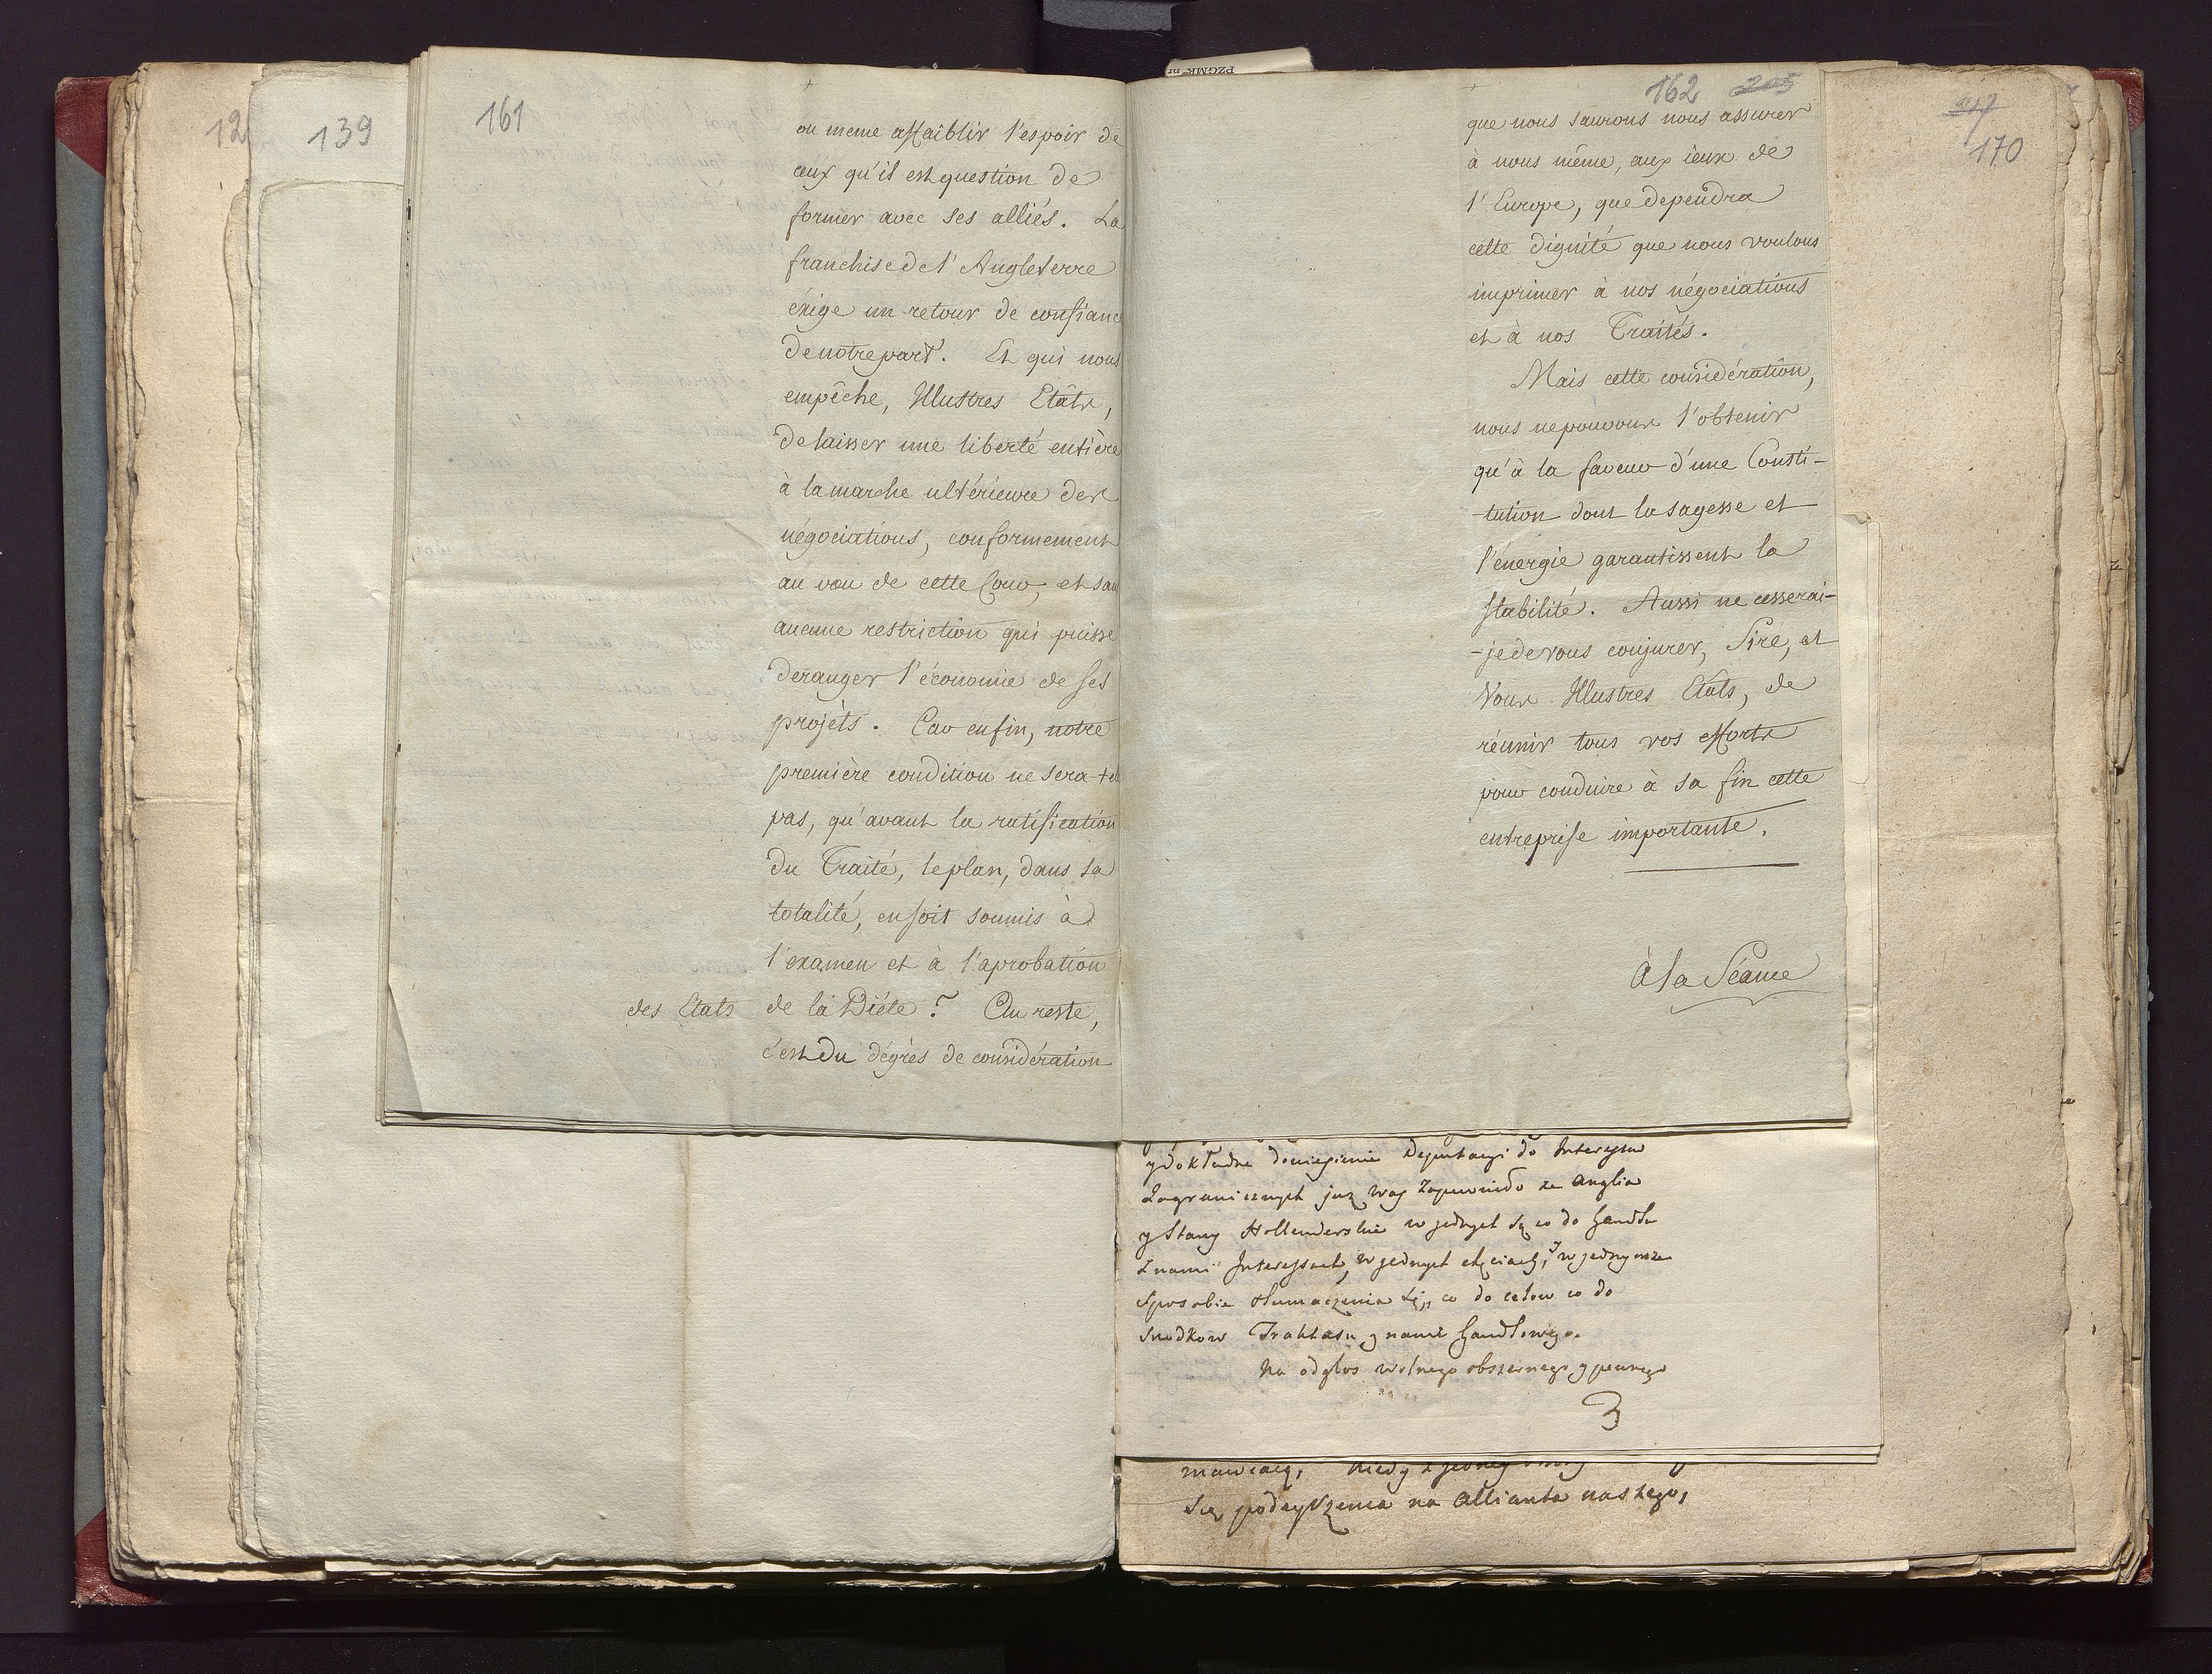 12
139
161
ou meme affaiblir l'espoir de
ceux qu'il est question de
former avec ses alliés. La
franchise de l'Angleterre
éxige un retour de confianc
de notre part. Et qui nous
empêche, Illustres Etâts,
de laisser une liberté entière
à la marche ultérieure des
négociations, conformement
au vœu de cette Cour, et san
aucune restriction qui puisse
deranger l'économie de ses
projèts. Car enfin, notre
première condition ne sera-t-el
pas, qu'avant la ratification
du Traité, le plan, dans sa
totalité, en soit soumis à
l'examen et à l'aprobation
des Etats de la Diéte? Au reste,
c'est du dégrès de considération
PZGMK nr
162 205
que nous saurons nous assurer
à nous même, aux ieux de
l'Europe, que dependra
cette dignité que nous voulons
imprimer à nos négociations
et à nos Traités.
Mais cette considération,
nous ne pouvons l'obtenir
qu'à la faveur d'une Consti-
-tution dont la sagesse et
l'énergie garantissent la
stabilité. Aussi ne cesserai-
-je de vous conjurer, Sire, et
Vous Illustres Etats, de
réunir tous vos efforts
pour conduire à sa fin cette
entreprise important​e.
à la Séance
170
y dokładne doniesienie Deputacyi do Interesow
Zagranicznych juz was zapewniło ze Anglia
y Stany Hollenderskie w jednych są co do handlu
z nami Interessach, w jednych chęciach, w jednymze
sposobie tłumaczenia się, co do celow co do
srodkow Traktatu z nami handlowego.
Na odgłos wolnego obszernego y pewnego
3
mawiacą, kiedy z jedney
Się podeyrzenia na Allianta naszego,